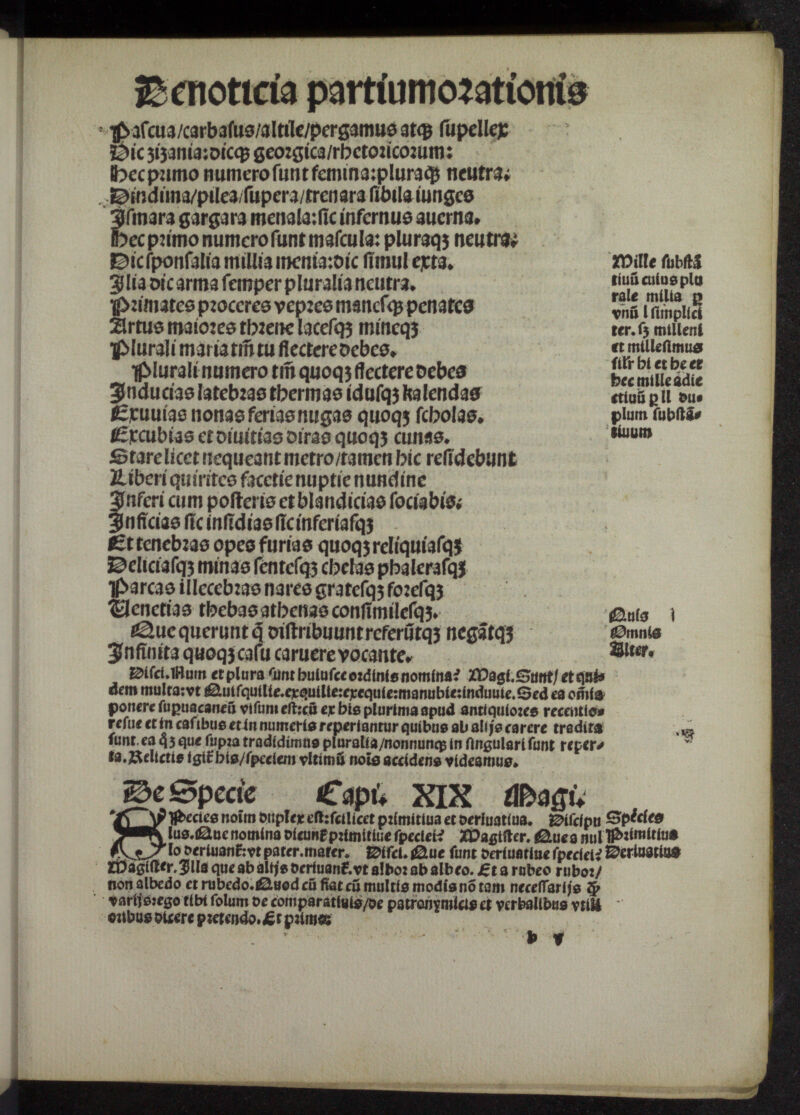 De noticia partium orationis
Pascua/carbasus/altile/pergamus atqꝫ supellex
Dic zizania:dicqꝫ georgica/rhetoricorum:
Hec primo numero sunt femina:pluraqꝫ neutra.
Dindima/pilea/supera/trenara sibila iunges
Ismara gargara menala:sic infernus auerna.
Hec primo numero sunt mascula: pluraqꝫ neutra.
Dic sponsalia millia menia:dic simul exta.
Ilia dic arma semper pluralia neutra.
Primates proceres vepres manesqꝫ penates
Artus maiores threne lacesqꝫ mineqꝫ
Plurali maria tm̄ tu flectere debes.
Plurali numero tm̄ quoqꝫ flectere debes
Inducias latebras thermas idusqꝫ kalendas
Exuuias nonas ferias nugas quoqꝫ scholas.
Excubias et diuitias diras quoqꝫ cunas.
Stare licet nequeant metro/tamen hic residebunt
Liberi quirites facetie nuptie nundine
Inferi cum posteris et blandicias sociabis.
Inficias sic insidias sic inferiasqꝫ
Et tenebras opes furias quoqꝫ reliquiasqꝫ
Deliciasqꝫ minas sentesqꝫ chelas phalerasqꝫ
Parcas illecebras nares gratesqꝫ foresqꝫ
Venetias thebas athenas consimilesqꝫ.
Que querunt q̄ distribuunt referūtqꝫ negātqꝫ
Infinita quoqꝫ casu caruere vocante.
Mille substā
tiuū cuius plu
rale milia ꝑ
vnū l simplici
ter. sꝫ milleni
et millesimus
silr hi et he et
hec mille adie
ctiuū ꝑ ll du-
plum substā-
tiuum
Quis i
Omnis
Alter.
Disci. Num et plura sunt huiusce ordinis nomina? Magi. Sunt/ et qui
dem multa:vt Quisquilie.exquilie:exequie:manubie:induuie. Sed ea om̄ia
ponere supuacaneū visum est:cū ex his plurima apud antiquiores recentio-
resue et in casibus et in numeris reperiantur quibus ab alijs carere tradita
sunt. ea q̄ꝫ que supra tradidimus pluralia/nonnunqꝫ in singulari sunt reper-
ta. Relictis igit̄ his/speciem vltimū nois accidens videamus.
De Specie Capi. XIX Magi.
Species noim duplex est:scilicet primitiua et deriuatiua. Discipu
lus. Que nomina dicunt̄ primitiue speciei? Magister. Que a nul
lo deriuant̄:vt pater.mater. Disci. Que sunt deriuatiue speciei?
Magister. Illa que ab alijs deriuant̄.vt albor ab albeo. Et a rubeo rubor/
non albedo et rubedo. Quod cū fiat cū multis modis nō tam necessarijs ꝙ̄
varijs:ego tibi solum de comparatiuis/de patronymicis et verbalibus vtili
oribus dicere pretendo. Et primo:
Species
Primitiua
Deriuatiua
b v